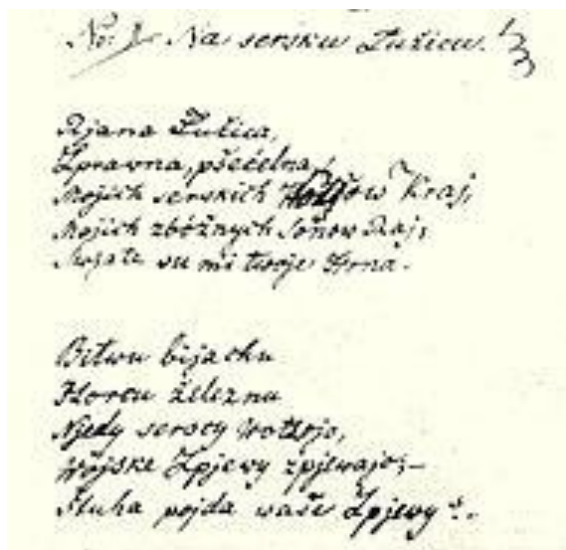 No: 1. Na serсku Łužicu!
Rjana Łužica,
Zprawna, pšećelna,
Mojich serskich Kraj,
Mojich zbóžnych Sonow Raj,
su mi twoje Hona.
Bitwu bijachu
Horcu železnu
Njedy serscy Wotcojo,
Wójske Zpjewy zpjewajo;—
Štuha pojda waše Zpjewy?.